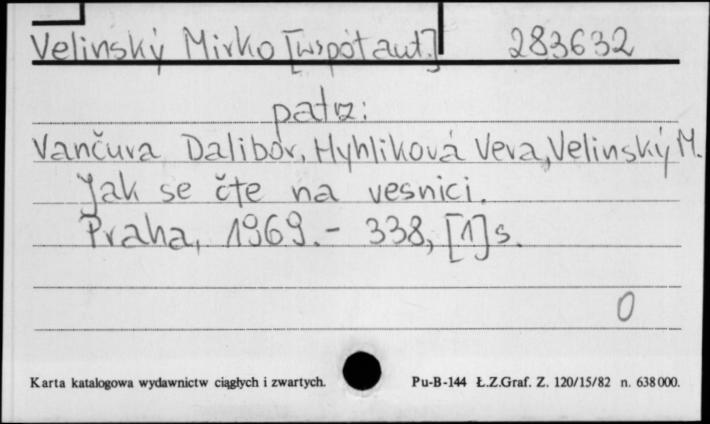 Velinský Mirko [współaut.] 283632
patrz:
Vančura Dalibor, Hyhlíková Vera, Velinský M.
Jak se čte na vesnici.
Praha, 1969. - 338, [1] s.
0
Karta katalogowa wydawnictw ciągłych i zwartych. Pu-B-144 Ł.Z.Graf. Z. 120/15/82 n. 638 000.